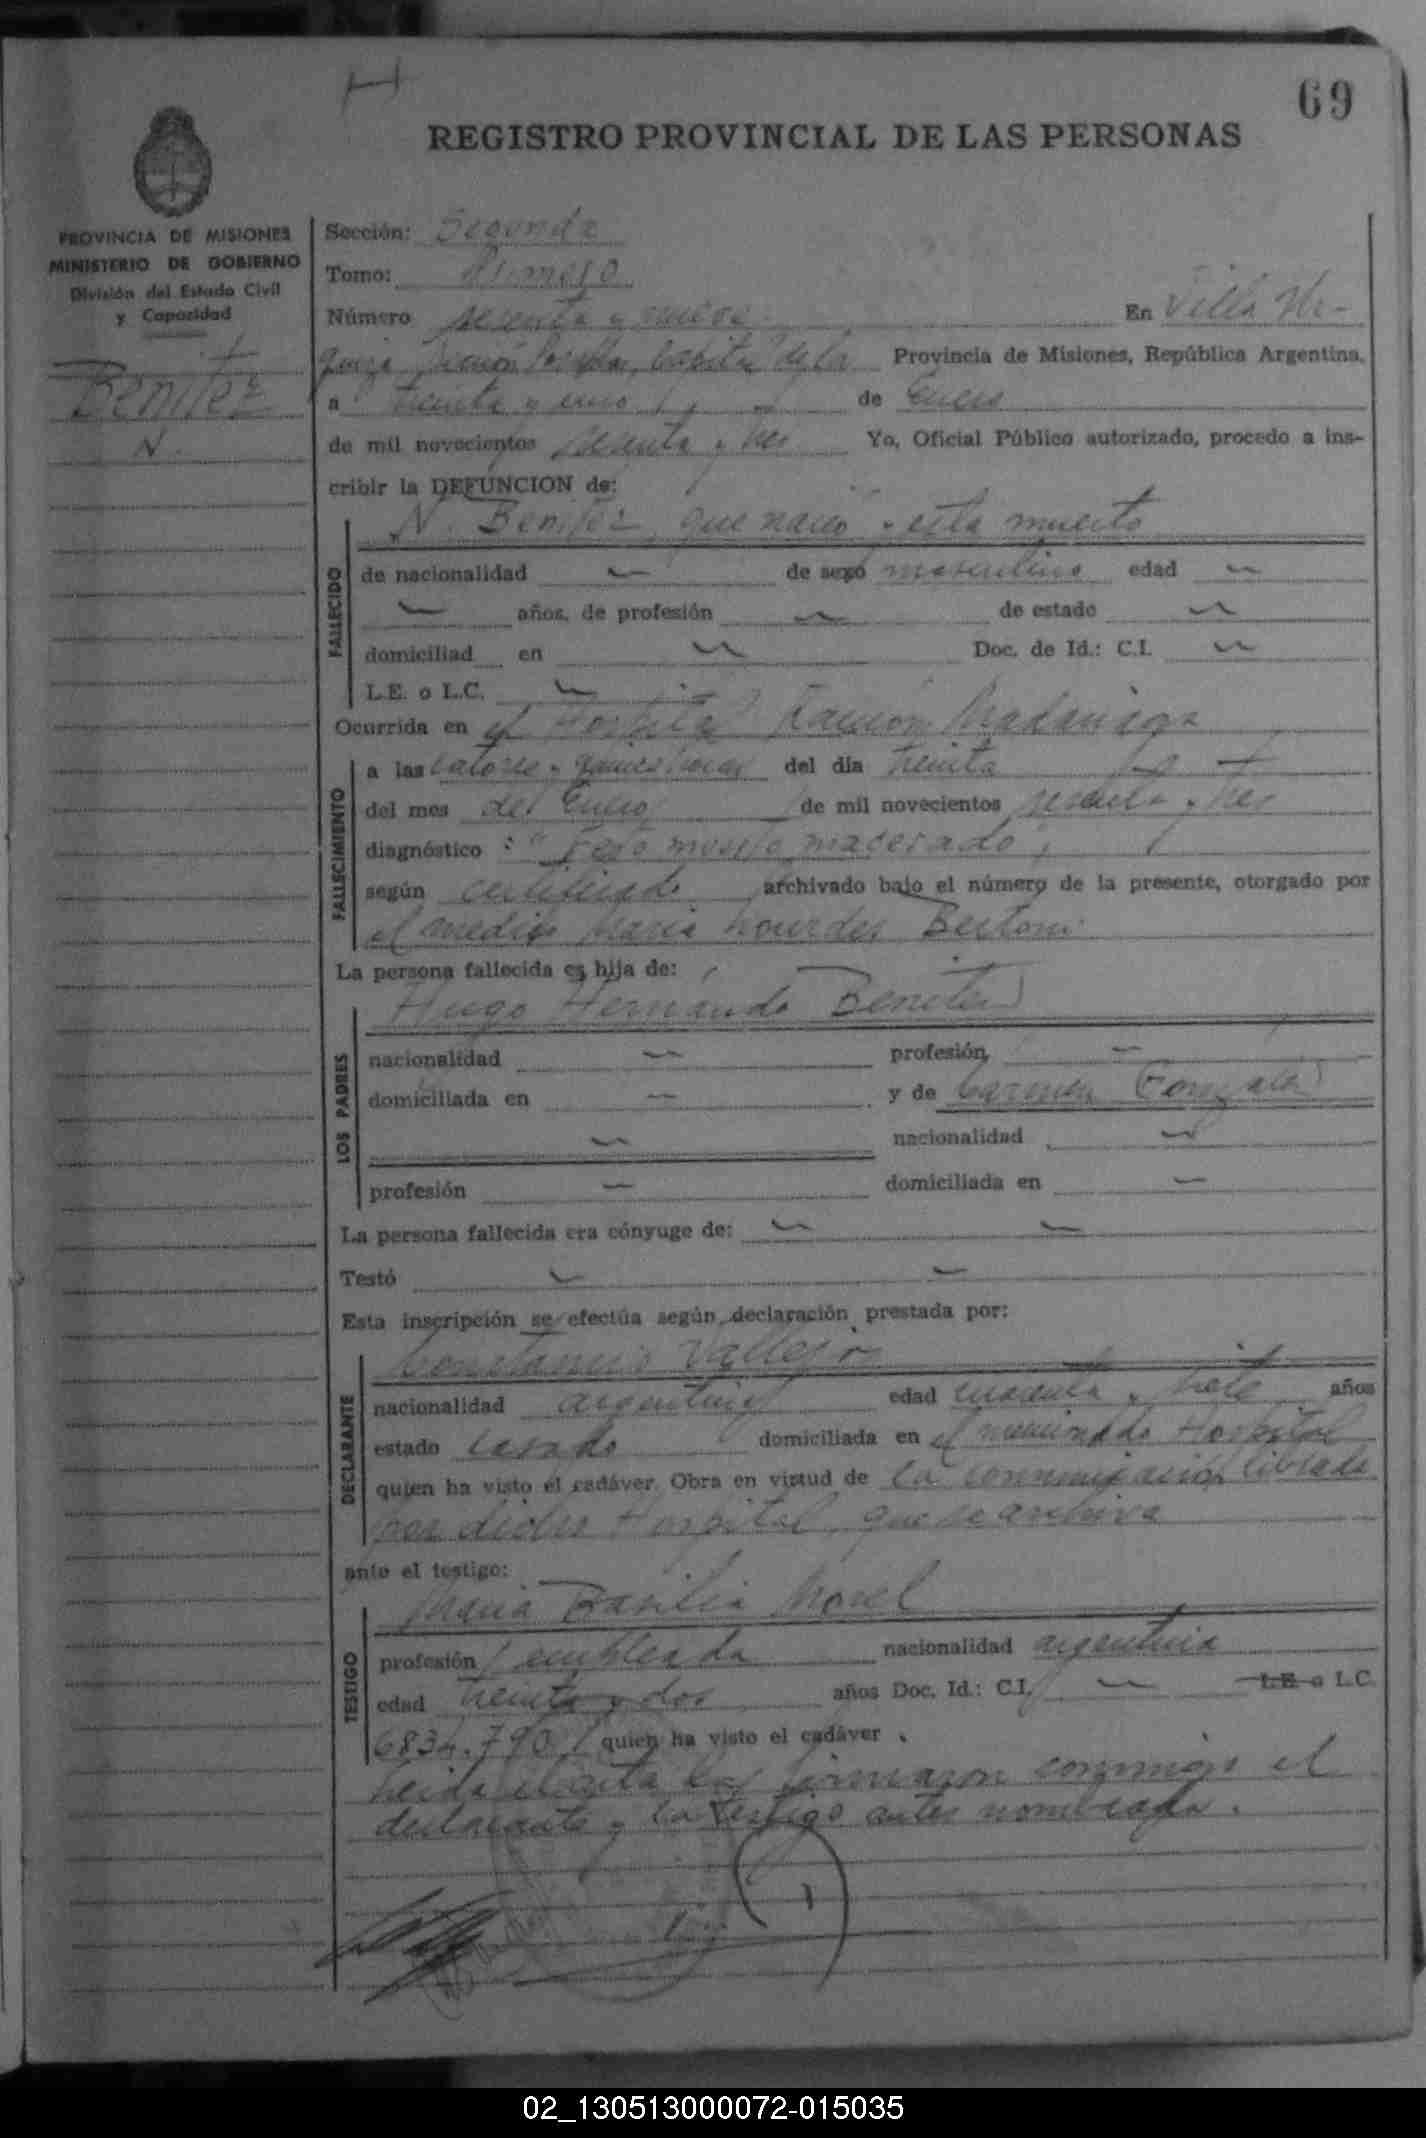 69
REGISTRO PROVINCIAL DE LAS PERSONAS
PROVINCIA DE MISIONES
MINISTERIO DE GOBIERNO
División del Estado Civil
y Capacidad
Benitez
N.
Sección: Segunda
Tomo: Primero
Número sesenta y nueve En Villa Ur-
quiza Capital de la Provincia de Misiones, República Argentina,
a treinta y uno de Enero
de mil novecientos sesenta y tres Yo, Oficial Público autorizado, procedo a ins-
cribir la DEFUNCION de:
N. Benitez, que nació y esta muerto
FALLECIDO
de nacionalidad — de sexo masculino edad —
— años, de profesión — de estado —
domiciliad en — Doc. de Id.: C.I. —
L.E. o L.C. —
Ocurrida en el Hospital Ramón Madariaga
FALLECIMIENTO
a las catorce y quince horas del día treinta
del mes de Enero de mil novecientos sesenta y tres
diagnóstico : "Feto muerto macerado";
según certificado archivado bajo el número de la presente, otorgado por
el medico Maria Lourdes Bertoni.
La persona fallecida es hija de:
Hugo Hernando Benitez
LOS PADRES
nacionalidad — profesión —
domiciliada en — y de Carmen Gonzalez
— nacionalidad —
profesión — domiciliada en —
La persona fallecida era cónyuge de: — —
Testó — —
Esta inscripción se efectúa según declaración prestada por:
Constancio Vallejos
DECLARANTE
nacionalidad argentino edad cuarenta y siete años
estado casado domiciliada en el mencionado Hospital
quien ha visto el cadáver. Obra en virtud de la comunicación librada
por dicho Hospital, que se archiva
ante el testigo:
Maria Basilia Morel
TESTIGO
profesión empleada nacionalidad argentina
edad treinta y dos años Doc. Id.: C.I. — L.E. o L.C.
6834.790 quien ha visto el cadáver .
Leida el acta la firmaron conmigo el
declarante y la testigo antes nombrada.
02_130513000072-015035